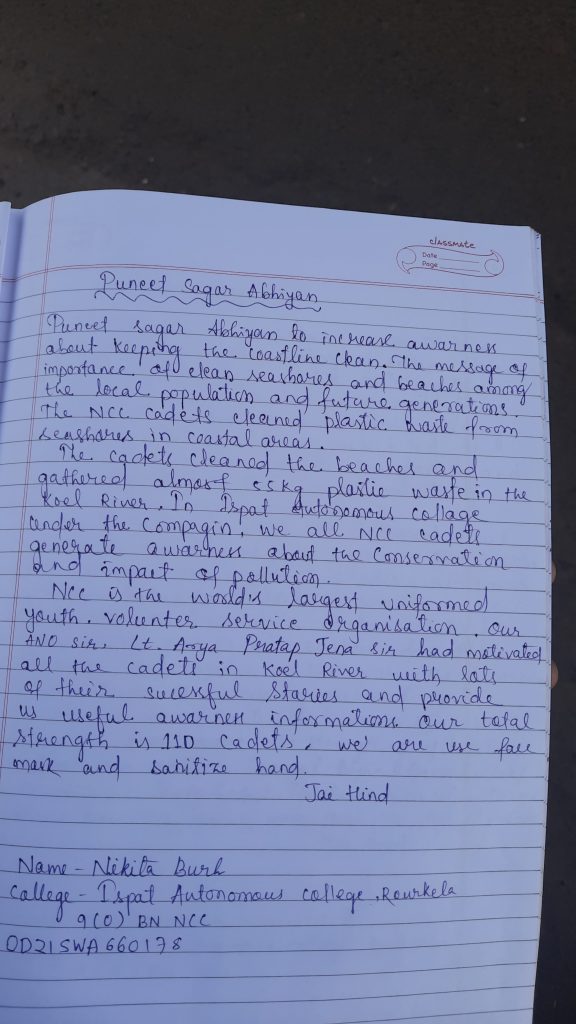 classmate
Date
Page
Puneet Sagar Abhiyan
Puneet sagar Abhiyan to increase awarness
about keeping the coastline clean. The message of
importance of clean seashares and beaches among
the local population and future generations.
The NCC cadets cleaned plastic waste from
seashares in coastal areas.
The cadets cleaned the beaches and
gathered almost 55kg plastic waste in the
Koel River. In Ispat Autonomous collage
under the Compagin, we all NCC cadets
generate awarness about the Conservation
and impact of pollution.
NCC is the world's largest uniformed
youth. volunter service organisation. Our
ANO sir, Lt. Arya Pratap Jena sir had motivated
all the cadets in Koel River with lots
of their sucessful Staries and provide
us useful awarness informations. Our total
strength is 110 cadets. we are use face
mask and sanitize hand.
Jai Hind
Name - Nikita Burh
College - Ispat Autonomous college, Rourkela
9(O) BN NCC
OD21SWA660178